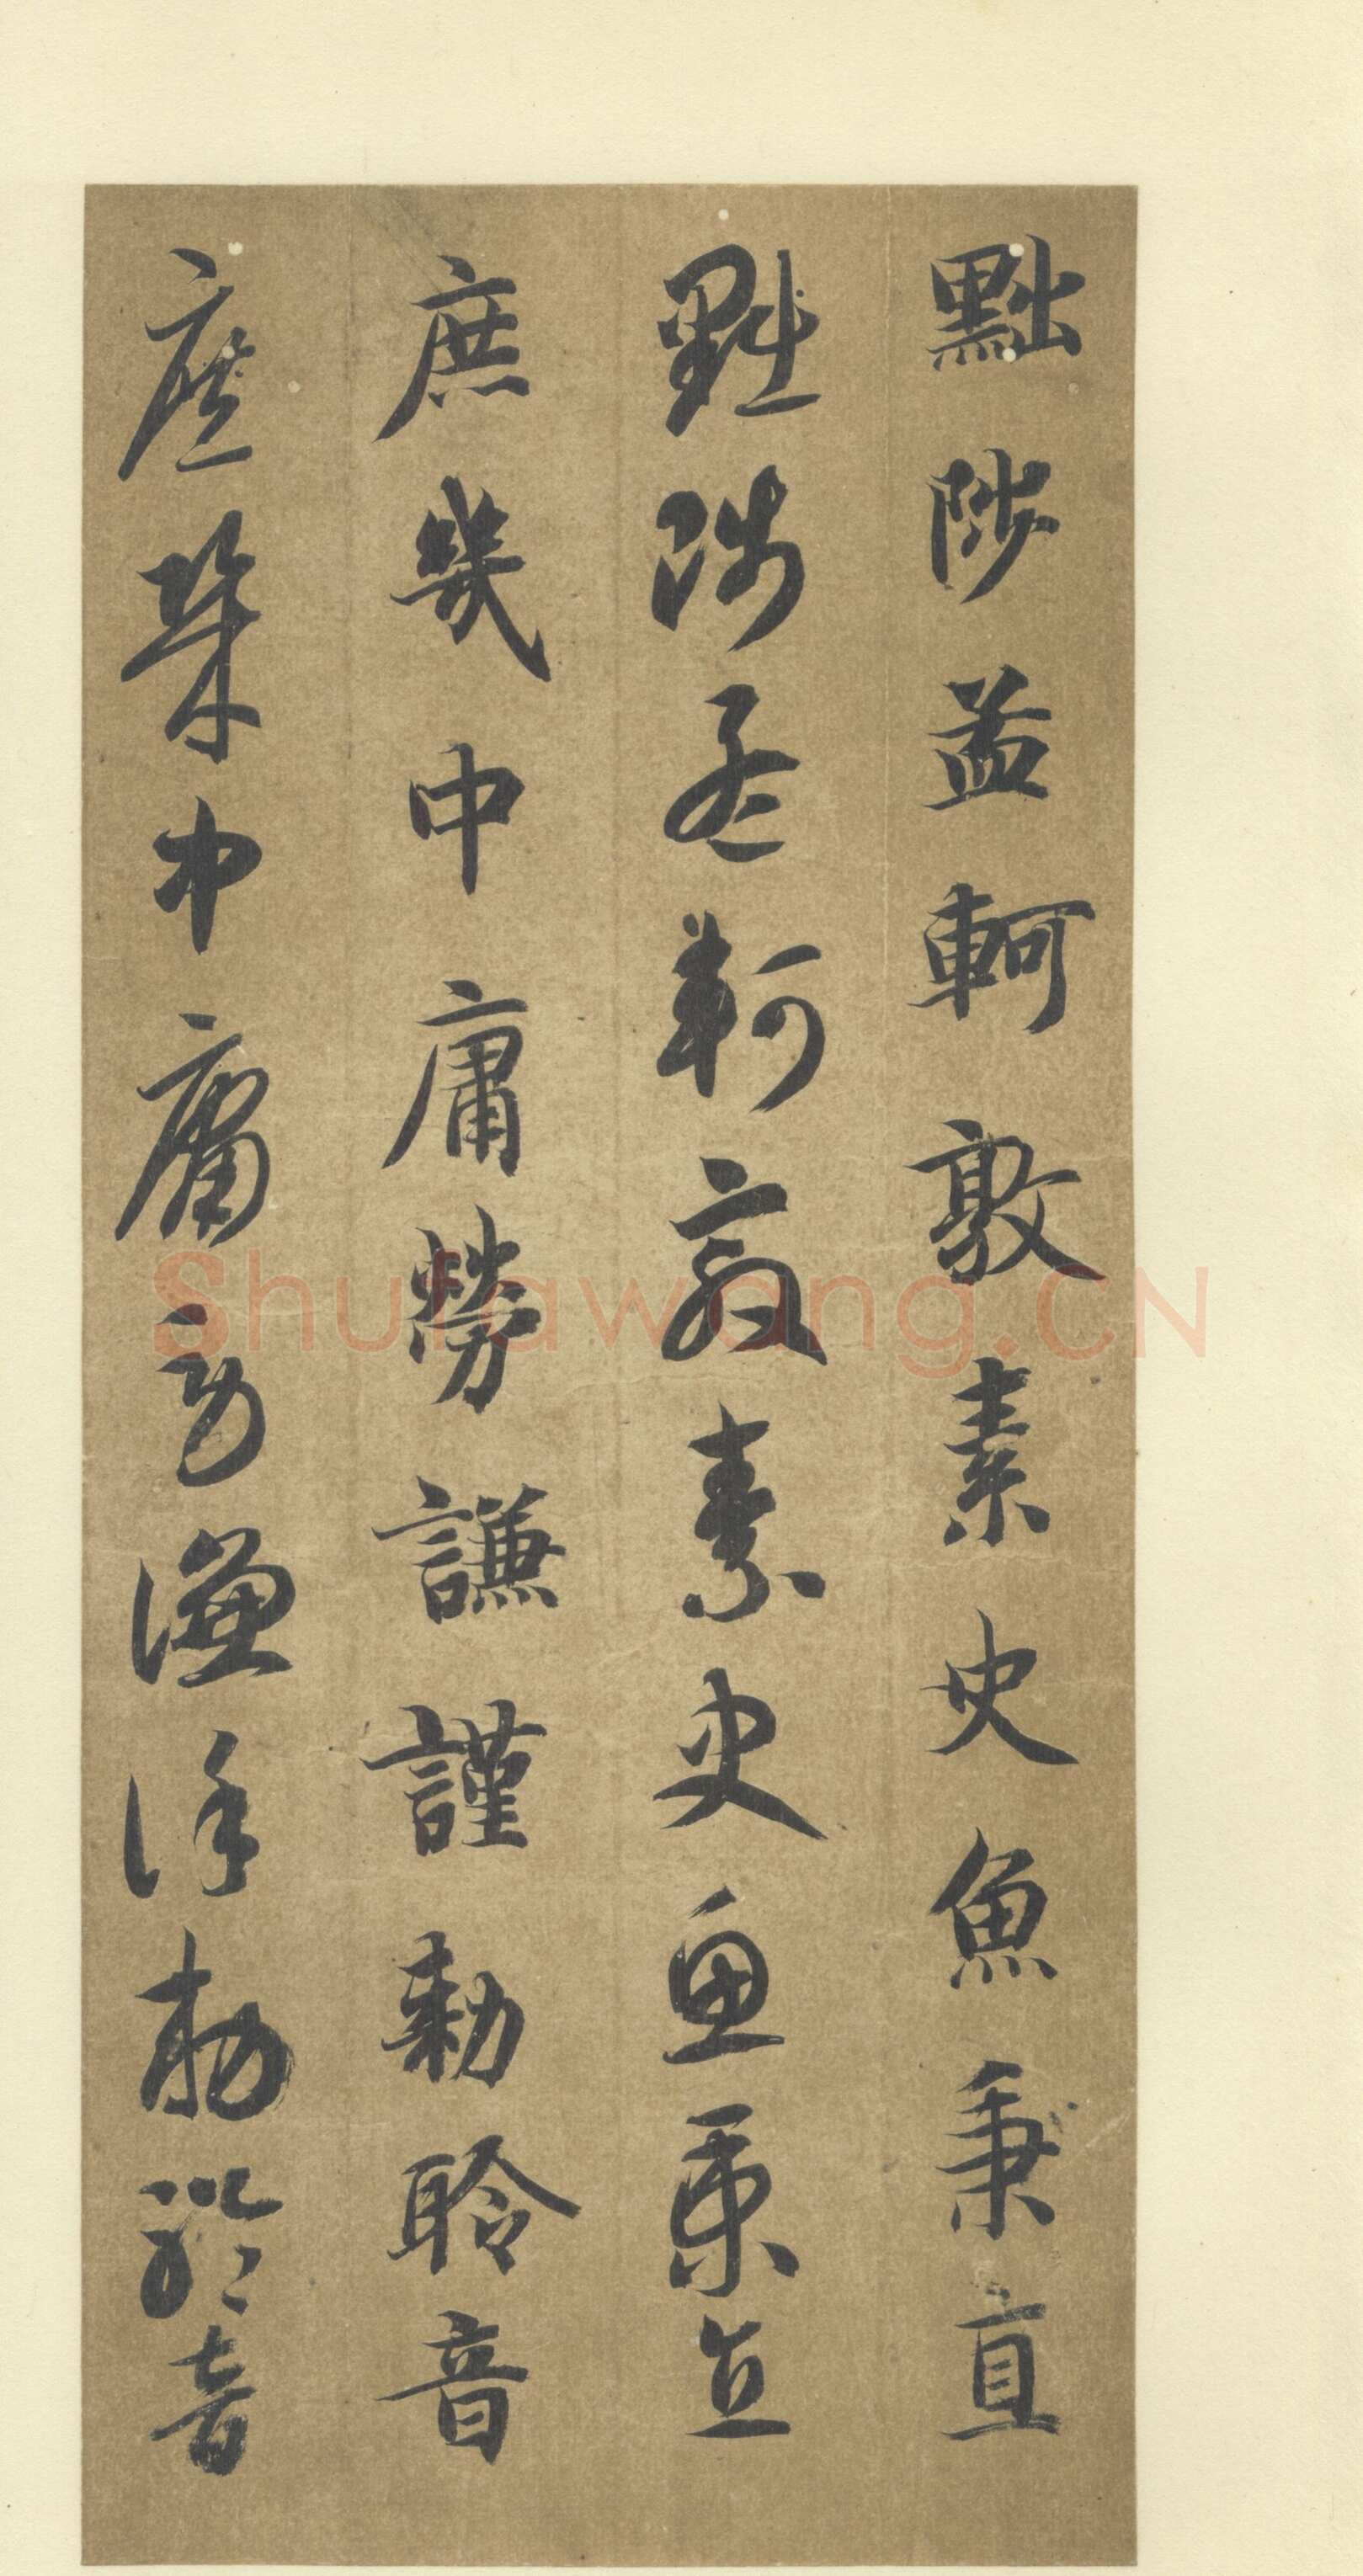 黜陟孟軻敦素史魚秉直
黜陟孟軻敦素史魚秉直
庶幾中庸勞謙謹勅聆音
庶幾中庸勞謙謹勅聆音
Shufawang.CN